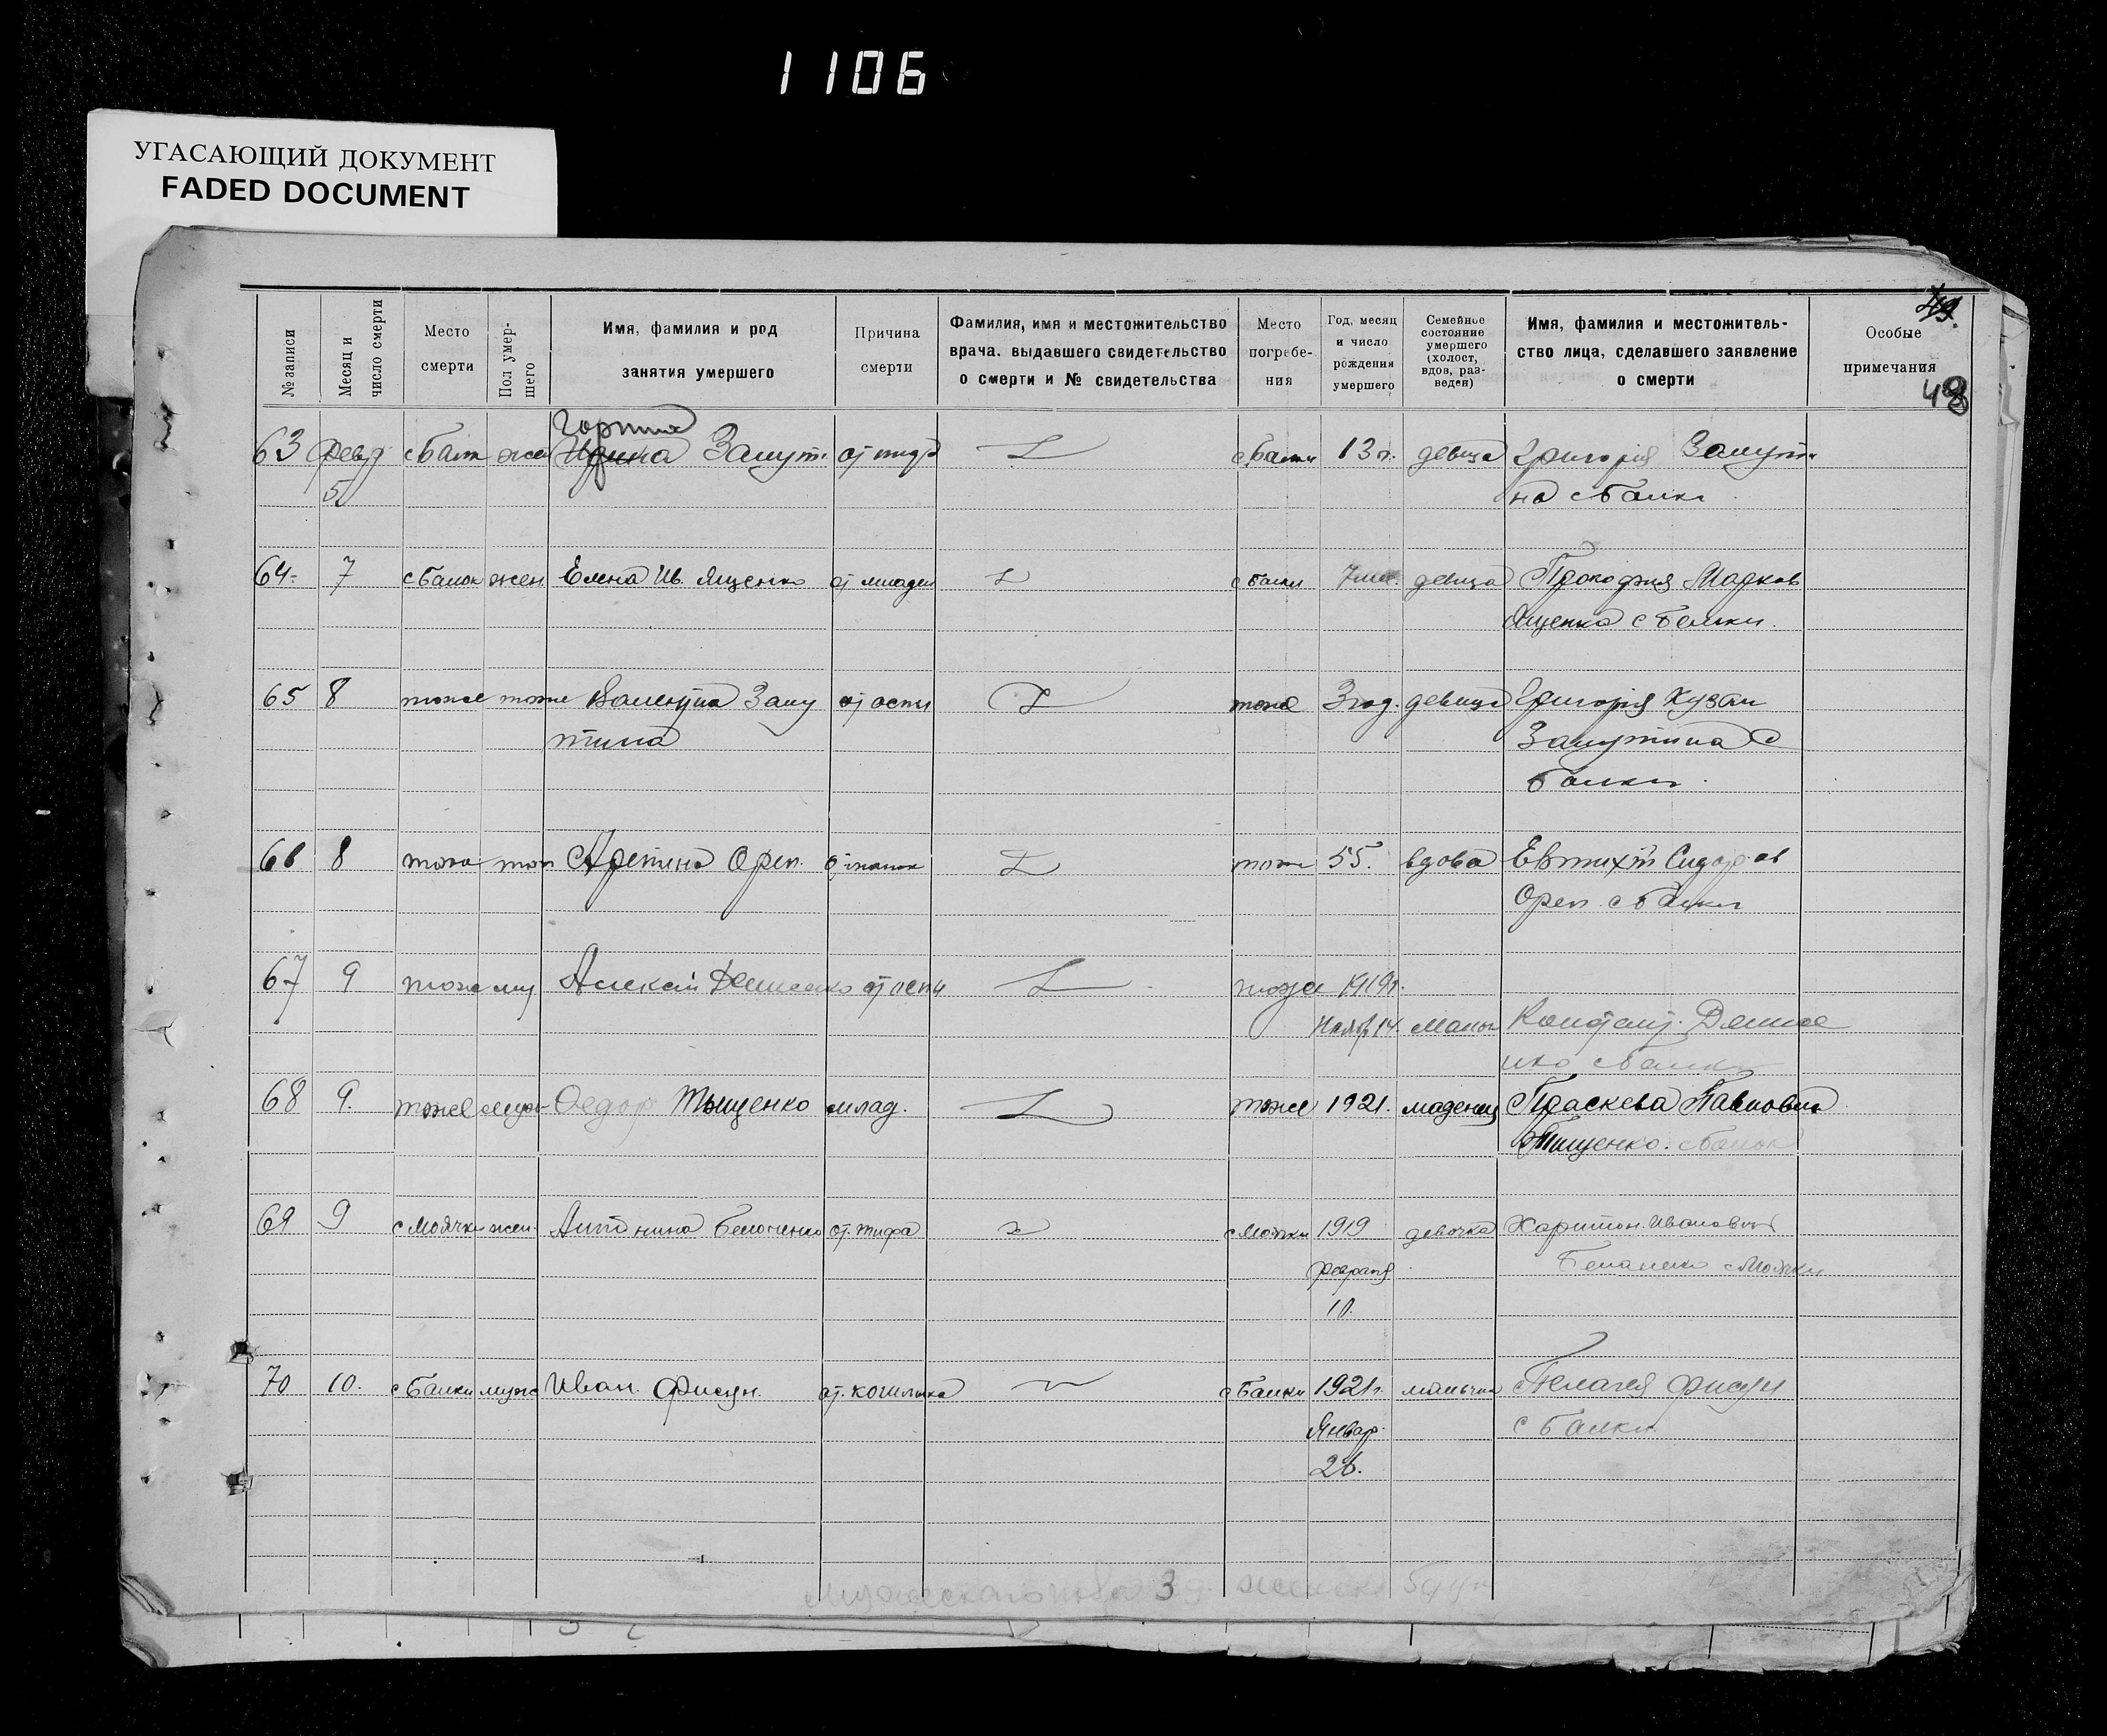 1106
УГАСАЮЩИЙ ДОКУМЕНТ
FADED DOCUMENT
49.
48
№ записи
Месяц и число смерти
Место смерти
Пол умер-шего
Имя, фамилия и род занятия умершего
Причина смерти
Фамилия, имя и местожительство врача. выдавшего свидетельство о смерти и № свидетельства
Место погребе-ния
Год, месяц и число рождения умершего
Семейное состояние умершего (холост, вдов, раз-веден)
Имя, фамилия и местожитель-ство лица, сделавшего заявление о смерти
Особые примечания
63 февр с Балк жен Запут. от тифа с Балки 13 л. девица Григорія Запути
5 на с Балки
64. 7 с Балок жен. Елена Ив. Ященко от младен с Балки 7 девица Прокофия Марков
Ященка с Балки.
65 8 тоже тоже Валентина Запу от оспы тоже 3 год. девица Григорія Кузьм
тина Запутина с
Балки.
66 8 тоже тож Ореп. тоже 55. вдова Евтихій Сидоров
Ореп. с Балки
67 9 тоже му Алексей Денисенко от оспы тоже 1919 г.
Ноябр 14. Денисе
нко с Балки
68 9. тоже муж. Федор Тыщенко млад. тоже 1921. маденец Праскева Павловна
Тищенко. с Балок
69 9 с Моячки жен. Антонина Белоченко от. тифа с Моячки 1919 девочка Харитон. Иванович
февраля с Моячки
10.
70 10. с Балки муж Иван. Фисун. от. кошлыка с Балки 1921 г. мальчик Пелагея Фисун
Январ. с Балки.
26.
3